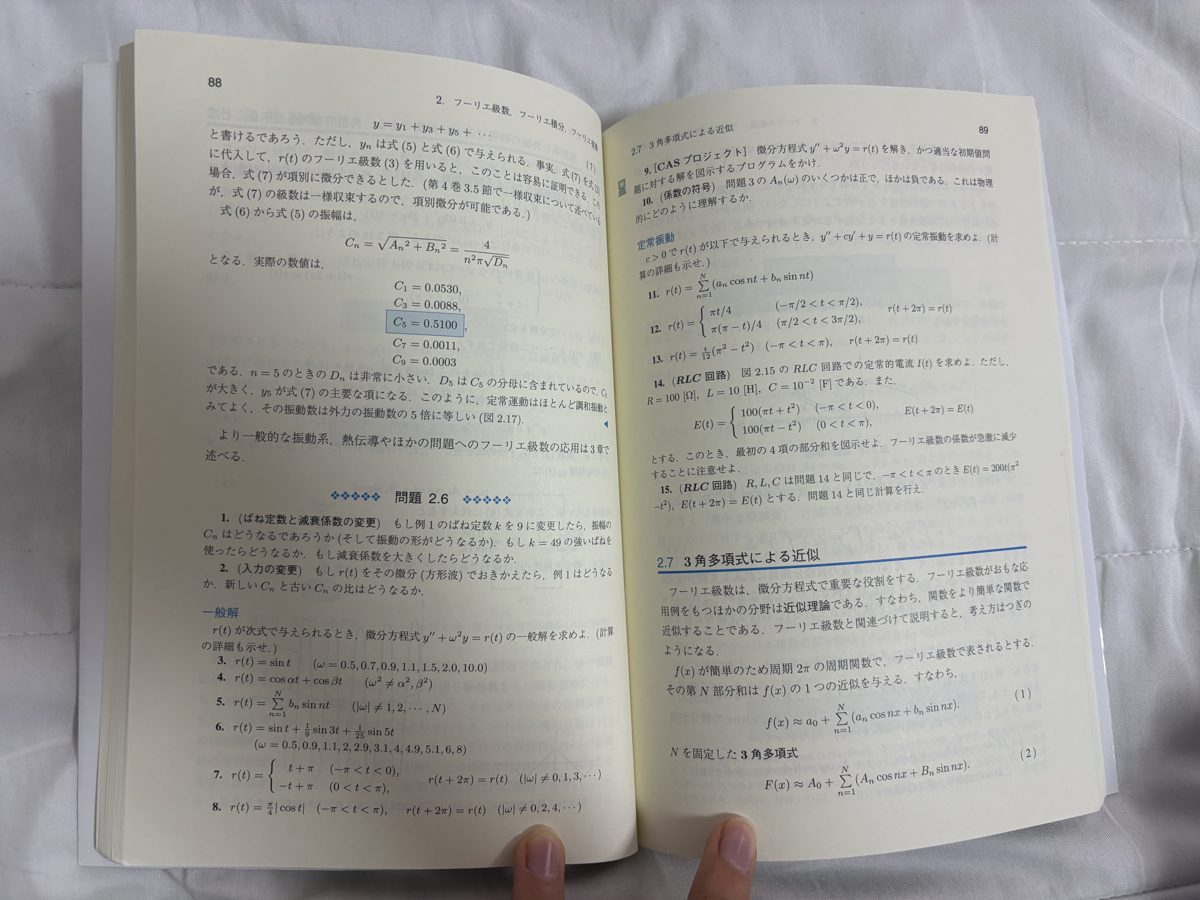 88
2. フーリエ級数, フーリエ積分, フーリエ変換
y = y₁ + y₃ + y₅ + ⋯ (7)
と書けるであろう. ただし, yₙ は式 (5) と式 (6) で与えられる. 事実, 式 (7) を式 (2)
に代入して, r(t) のフーリエ級数 (3) を用いると, このことは容易に証明できる. この
場合, 式 (7) が項別に微分できるとした. (第 4 巻 3.5 節で一様収束について述べている
が, 式 (7) の級数は一様収束するので, 項別微分が可能である.)
式 (6) から式 (5) の振幅は,
Cₙ = √(Aₙ² + Bₙ²) = 4/(n²π√Dₙ)
となる. 実際の数値は,
C₁ = 0.0530,
C₃ = 0.0088,
C₅ = 0.5100,
C₇ = 0.0011,
C₉ = 0.0003
である. n = 5 のときの Dₙ は非常に小さい. D₅ は C₅ の分母に含まれているので, C₅
が大きく, y₅ が式 (7) の主要な項になる. このように, 定常運動はほとんど調和振動と
みてよく, その振動数は外力の振動数の 5 倍に等しい (図 2.17).
より一般的な振動系, 熱伝導やほかの問題へのフーリエ級数の応用は 3 章で
述べる.
問題 2.6
1. (ばね定数と減衰係数の変更) もし例 1 のばね定数 k を 9 に変更したら, 振幅の
Cₙ はどうなるであろうか (そして振動の形がどうなるか). もし k = 49 の強いばねを
使ったらどうなるか. もし減衰係数を大きくしたらどうなるか.
2. (入力の変更) もし r(t) をその微分 (方形波) でおきかえたら, 例 1 はどうなる
か. 新しい Cₙ と古い Cₙ の比はどうなるか.
一般解
r(t) が次式で与えられるとき, 微分方程式 y″ + ω²y = r(t) の一般解を求めよ. (計算
の詳細も示せ.)
3. r(t) = sin t (ω = 0.5, 0.7, 0.9, 1.1, 1.5, 2.0, 10.0)
4. r(t) = cos αt + cos βt (ω² ≠ α², β²)
5. r(t) = Σₙ₌₁ᴺ bₙ sin nt (|ω| ≠ 1, 2, ⋯, N)
6. r(t) = sin t + 1/9 sin 3t + 1/25 sin 5t
(ω = 0.5, 0.9, 1.1, 2, 2.9, 3.1, 4, 4.9, 5.1, 6, 8)
7. r(t) = { t + π (−π < t < 0),
−t + π (0 < t < π), r(t + 2π) = r(t) (|ω| ≠ 0, 1, 3, ⋯)
8. r(t) = π/4 |cos t| (−π < t < π), r(t + 2π) = r(t) (|ω| ≠ 0, 2, 4, ⋯)
2.7 3 角多項式による近似
89
9. [CAS プロジェクト] 微分方程式 y″ + ω²y = r(t) を解き, かつ適当な初期値問
題に対する解を図示するプログラムをかけ.
10. (係数の符号) 問題 3 の Aₙ(ω) のいくつかは正で, ほかは負である. これは物理
的にどのように理解するか.
定常振動
c > 0 で r(t) が以下で与えられるとき, y″ + cy′ + y = r(t) の定常振動を求めよ. (計
算の詳細も示せ.)
11. r(t) = Σₙ₌₁ᴺ (aₙ cos nt + bₙ sin nt)
12. r(t) = { πt/4 (−π/2 < t < π/2),
π(π − t)/4 (π/2 < t < 3π/2), r(t + 2π) = r(t)
13. r(t) = t/12 (π² − t²) (−π < t < π), r(t + 2π) = r(t)
14. (RLC 回路) 図 2.15 の RLC 回路での定常的電流 I(t) を求めよ. ただし,
R = 100 [Ω], L = 10 [H], C = 10⁻² [F] である. また,
E(t) = { 100(πt + t²) (−π < t < 0),
100(πt − t²) (0 < t < π), E(t + 2π) = E(t)
とする. このとき, 最初の 4 項の部分和を図示せよ. フーリエ級数の係数が急激に減少
することに注意せよ.
15. (RLC 回路) R, L, C は問題 14 と同じで, −π < t < π のとき E(t) = 200t(π²
−t²), E(t + 2π) = E(t) とする. 問題 14 と同じ計算を行え.
2.7 3 角多項式による近似
フーリエ級数は, 微分方程式で重要な役割をする. フーリエ級数がおもな応
用例をもつほかの分野は近似理論である. すなわち, 関数をより簡単な関数で
近似することである. フーリエ級数と関連づけて説明すると, 考え方はつぎの
ようになる.
f(x) が簡単のため周期 2π の周期関数で, フーリエ級数で表されるとする.
その第 N 部分和は f(x) の 1 つの近似を与える. すなわち,
f(x) ≈ a₀ + Σₙ₌₁ᴺ (aₙ cos nx + bₙ sin nx). (1)
N を固定した 3 角多項式
F(x) ≈ A₀ + Σₙ₌₁ᴺ (Aₙ cos nx + Bₙ sin nx). (2)